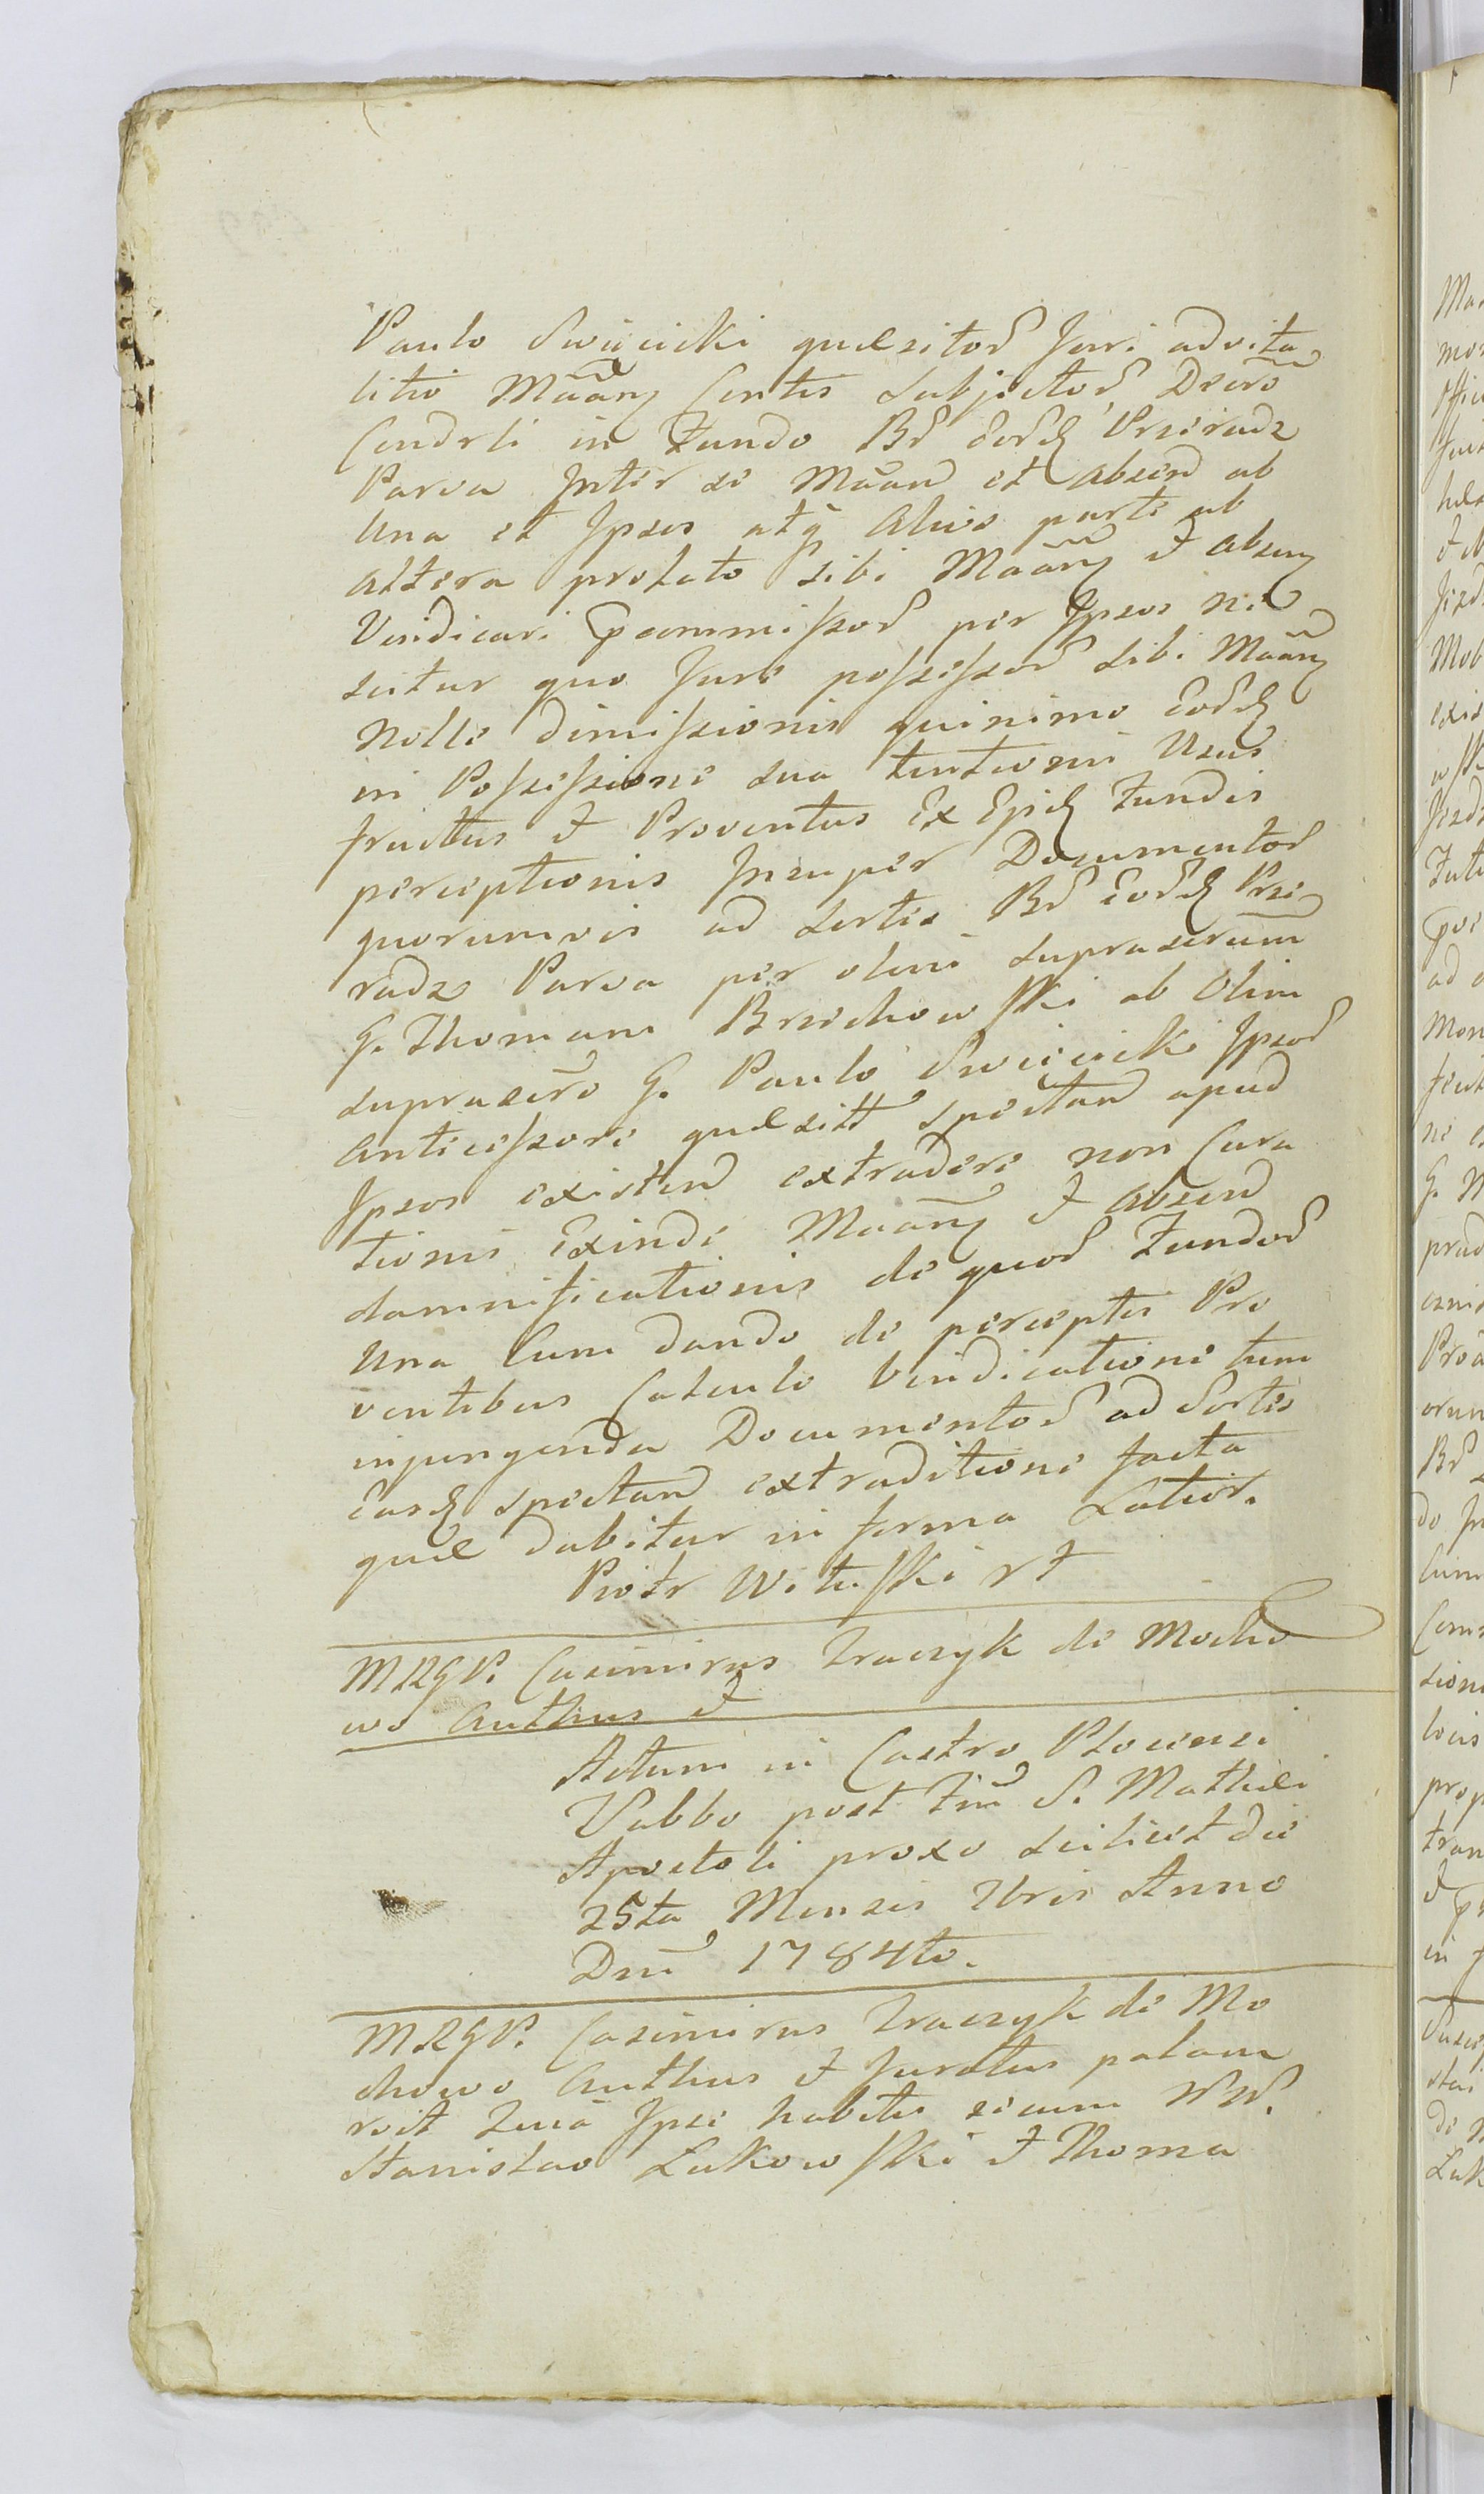 Paulo Swięcicki quæsitor Juri advita
litio Maãny Centis Subjector, Decro
Condrli in Fundo Br̃ eord Przeradz
Parva Inter se Maãn et absen ab
Una et Ipsos atq̃ Alios parte ab
altera prolato sibi Maãny et absen
Vindicari permissor per Ipsos nes
citur quo Jure possessor sibi Maãny
Nolle dimissionis quinimo Eord
in Possessione sua tentionis Usus
fructus et Proventus Ex Epid Fundis
perceptionis Insuper Documentor
quorumvis ad Sortes Br̃ Eord Prze
radz Parva per olim suprascrum
G. Thomam Brzechowski ab Olim
suprascro G. Paulo Swięcicki Ipsor
Antecessore quæsitt spectan apud
Ipsos existen extradere non Cura
tionis Exinde Maãny et absen
damnificationis de quor Fundor
Una Cum dando de perceptis Pro
ventibus Calculo Vindicatione tum
injungenda Documentor ad Sortes
easd spectan extraditione facta
quæ dabitur in forma Latior.
Piotr Wituski rt
MRGP. Casimirus Traczyk de Mocho
wo Authus et
Actum in Castro Plocensi
Sabbo post Fm̃ S. Mathæi
Apostoli proxo scilicet die
25ta Mensis 7bris Anno
Dni 1784to.
MRGP. Casimirus Traczyk de Mo
chowo Authus et Juratus palam
rcit Ipse habitis secum NN.
Stanislao Lukowski et Thoma